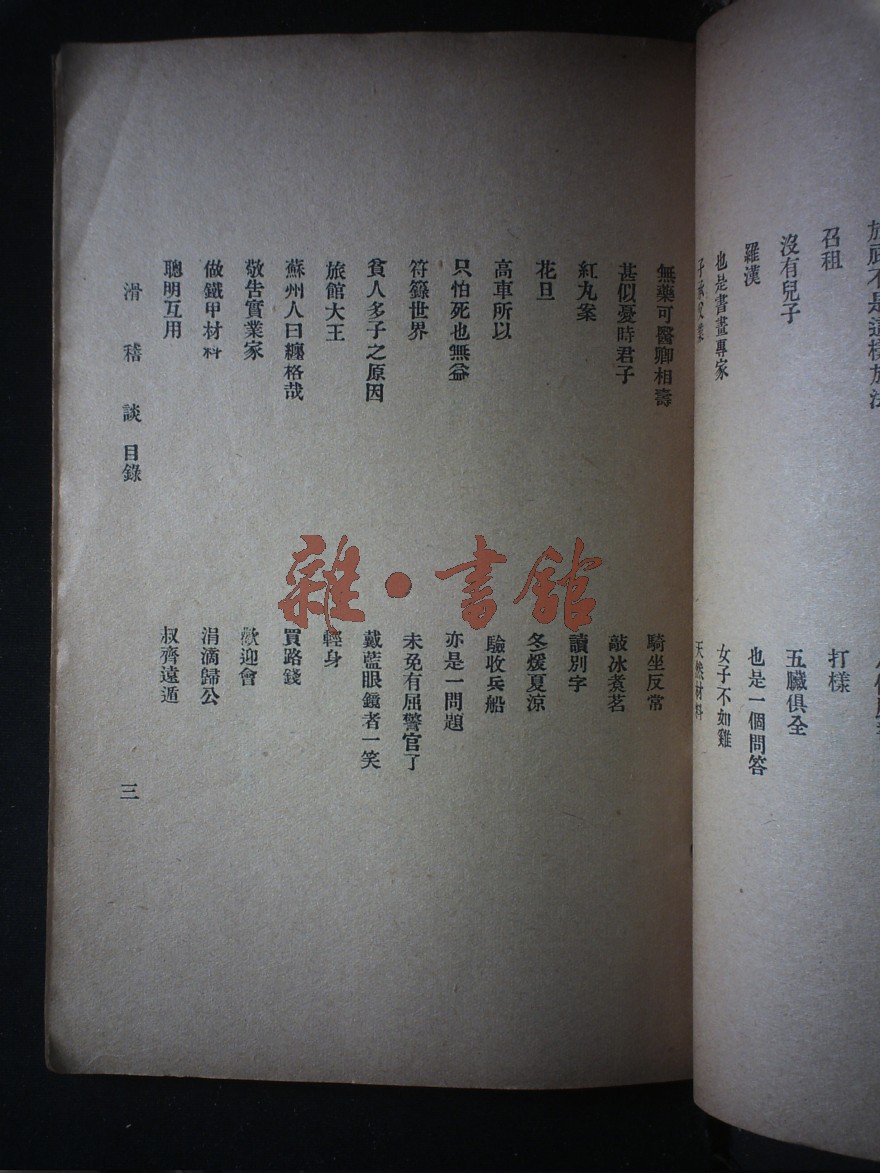 召租
沒有兒子
羅漢
也是書畫專家
打樣
五臟俱全
也是一個問答
女子不如雞
天然材料
無藥可醫卿相壽
甚似憂時君子
紅丸案
花旦
高車所以
只怕死也無益
符籙世界
貧人多子之原因
旅館大王
蘇州人曰纏格哉
敬告實業家
做鐵甲材料
聰明互用
騎坐反常
敲冰煮茗
讀別字
冬煖夏涼
驗收兵船
亦是一問題
未免有屈警官了
戴藍眼鏡者一笑
輕身
買路錢
歡迎會
涓滴歸公
叔齊遠遁
滑稽談 目錄
三
雜·書館